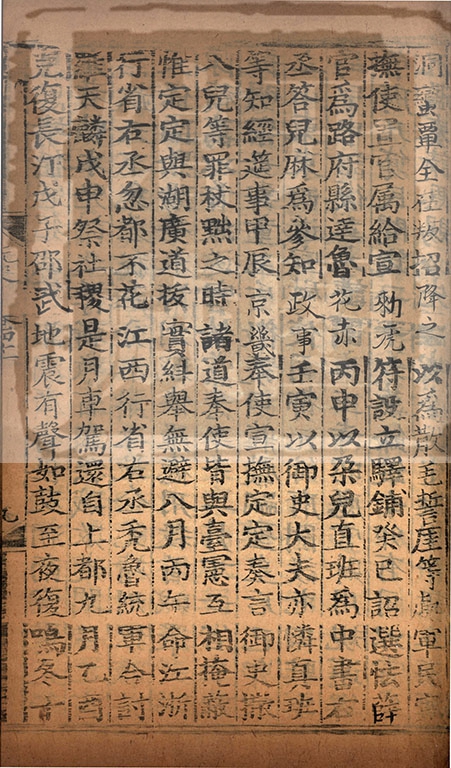 洞蠻覃全在叛招降之以爲散毛誓崖等處軍民宣
撫使置官属給宣勑虎符設立驛鋪癸巳詔選怯薛
官爲路府縣達魯花赤丙申以朶兒直班爲中書右
丞答兒麻爲參知政事壬寅以御史大夫亦憐真班
等知經筵事甲辰京畿奉使宣撫定定奏言御史撒
八兒等罪杖黜之時諸道奉使皆與臺憲互相掩蔽
惟定定與湖廣道拔實糾舉無避八月丙午命江浙
行省右丞忽都不花江西行省右丞禿魯統軍合討
羅天麟戊申祭社稷是月車駕還自上都九月乙酉
克復長汀戊子邵武地震有聲如鼓至夜復鳴冬十